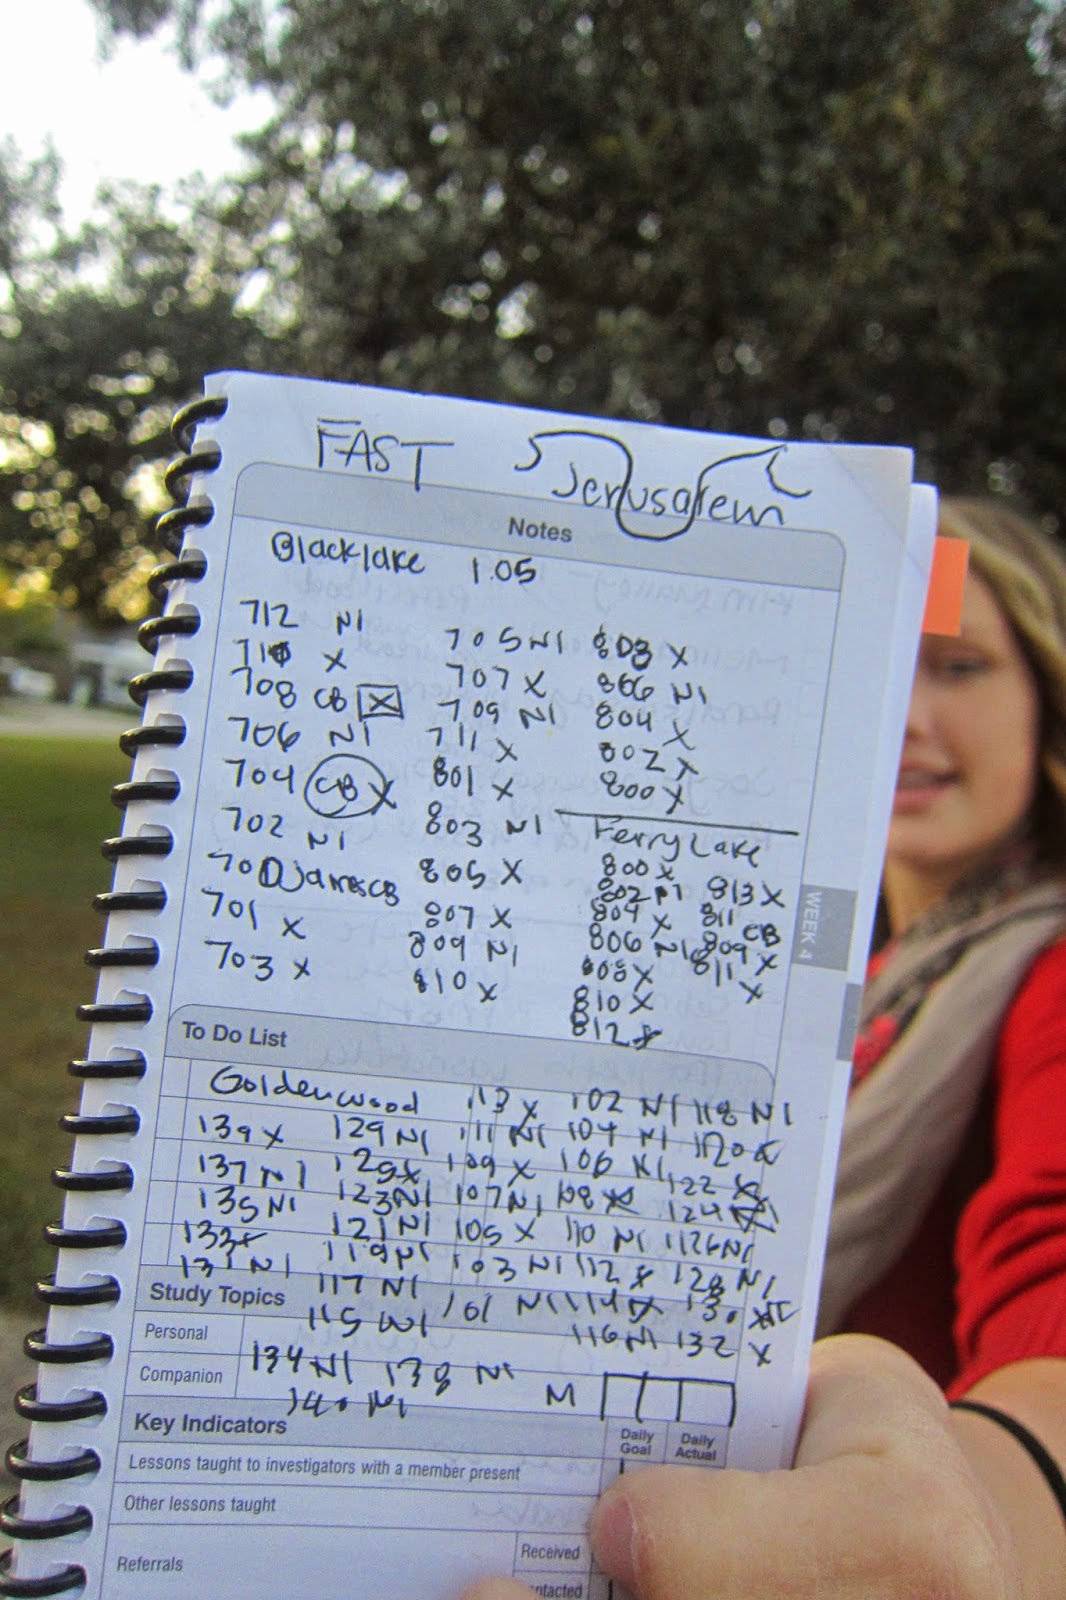 FAST Jerusalem
Notes
Blacklake 1.05
712 NI
710 X
708 CB X
706 NI
704 CB X
702 NI
700 James CB
701 X
703 X
705 NI
707 X
709 NI
711 X
801 X
803 NI
805 X
807 X
809 NI
810 X
803 X
806 NI
804 X
802 X
800 X
Ferry Lake
800 X
802 NI
804 X
806 NI
808 X
810 X
812 X
813 X
811 CB
809 X
811 X
WEEK 4
To Do List
Goldenwood
139 X
137 NI
135 NI
133 X
131 NI
129 NI
125 X
123 NI
121 NI
119 NI
117 NI
115 NI
113 X
111 NI
109 X
107 NI
105 X
103 NI
101 NI
102 NI
104 NI
106 NI
108 X
110 NI
112 X
114 X
116 NI
118 NI
120 X
122 X
124
126 NI
128 NI
130
132 X
Study Topics
Personal
Companion
134 NI 138 NI
140 NI M
Key Indicators
Daily Goal
Daily Actual
Lessons taught to investigators with a member present
Other lessons taught
Referrals
Received